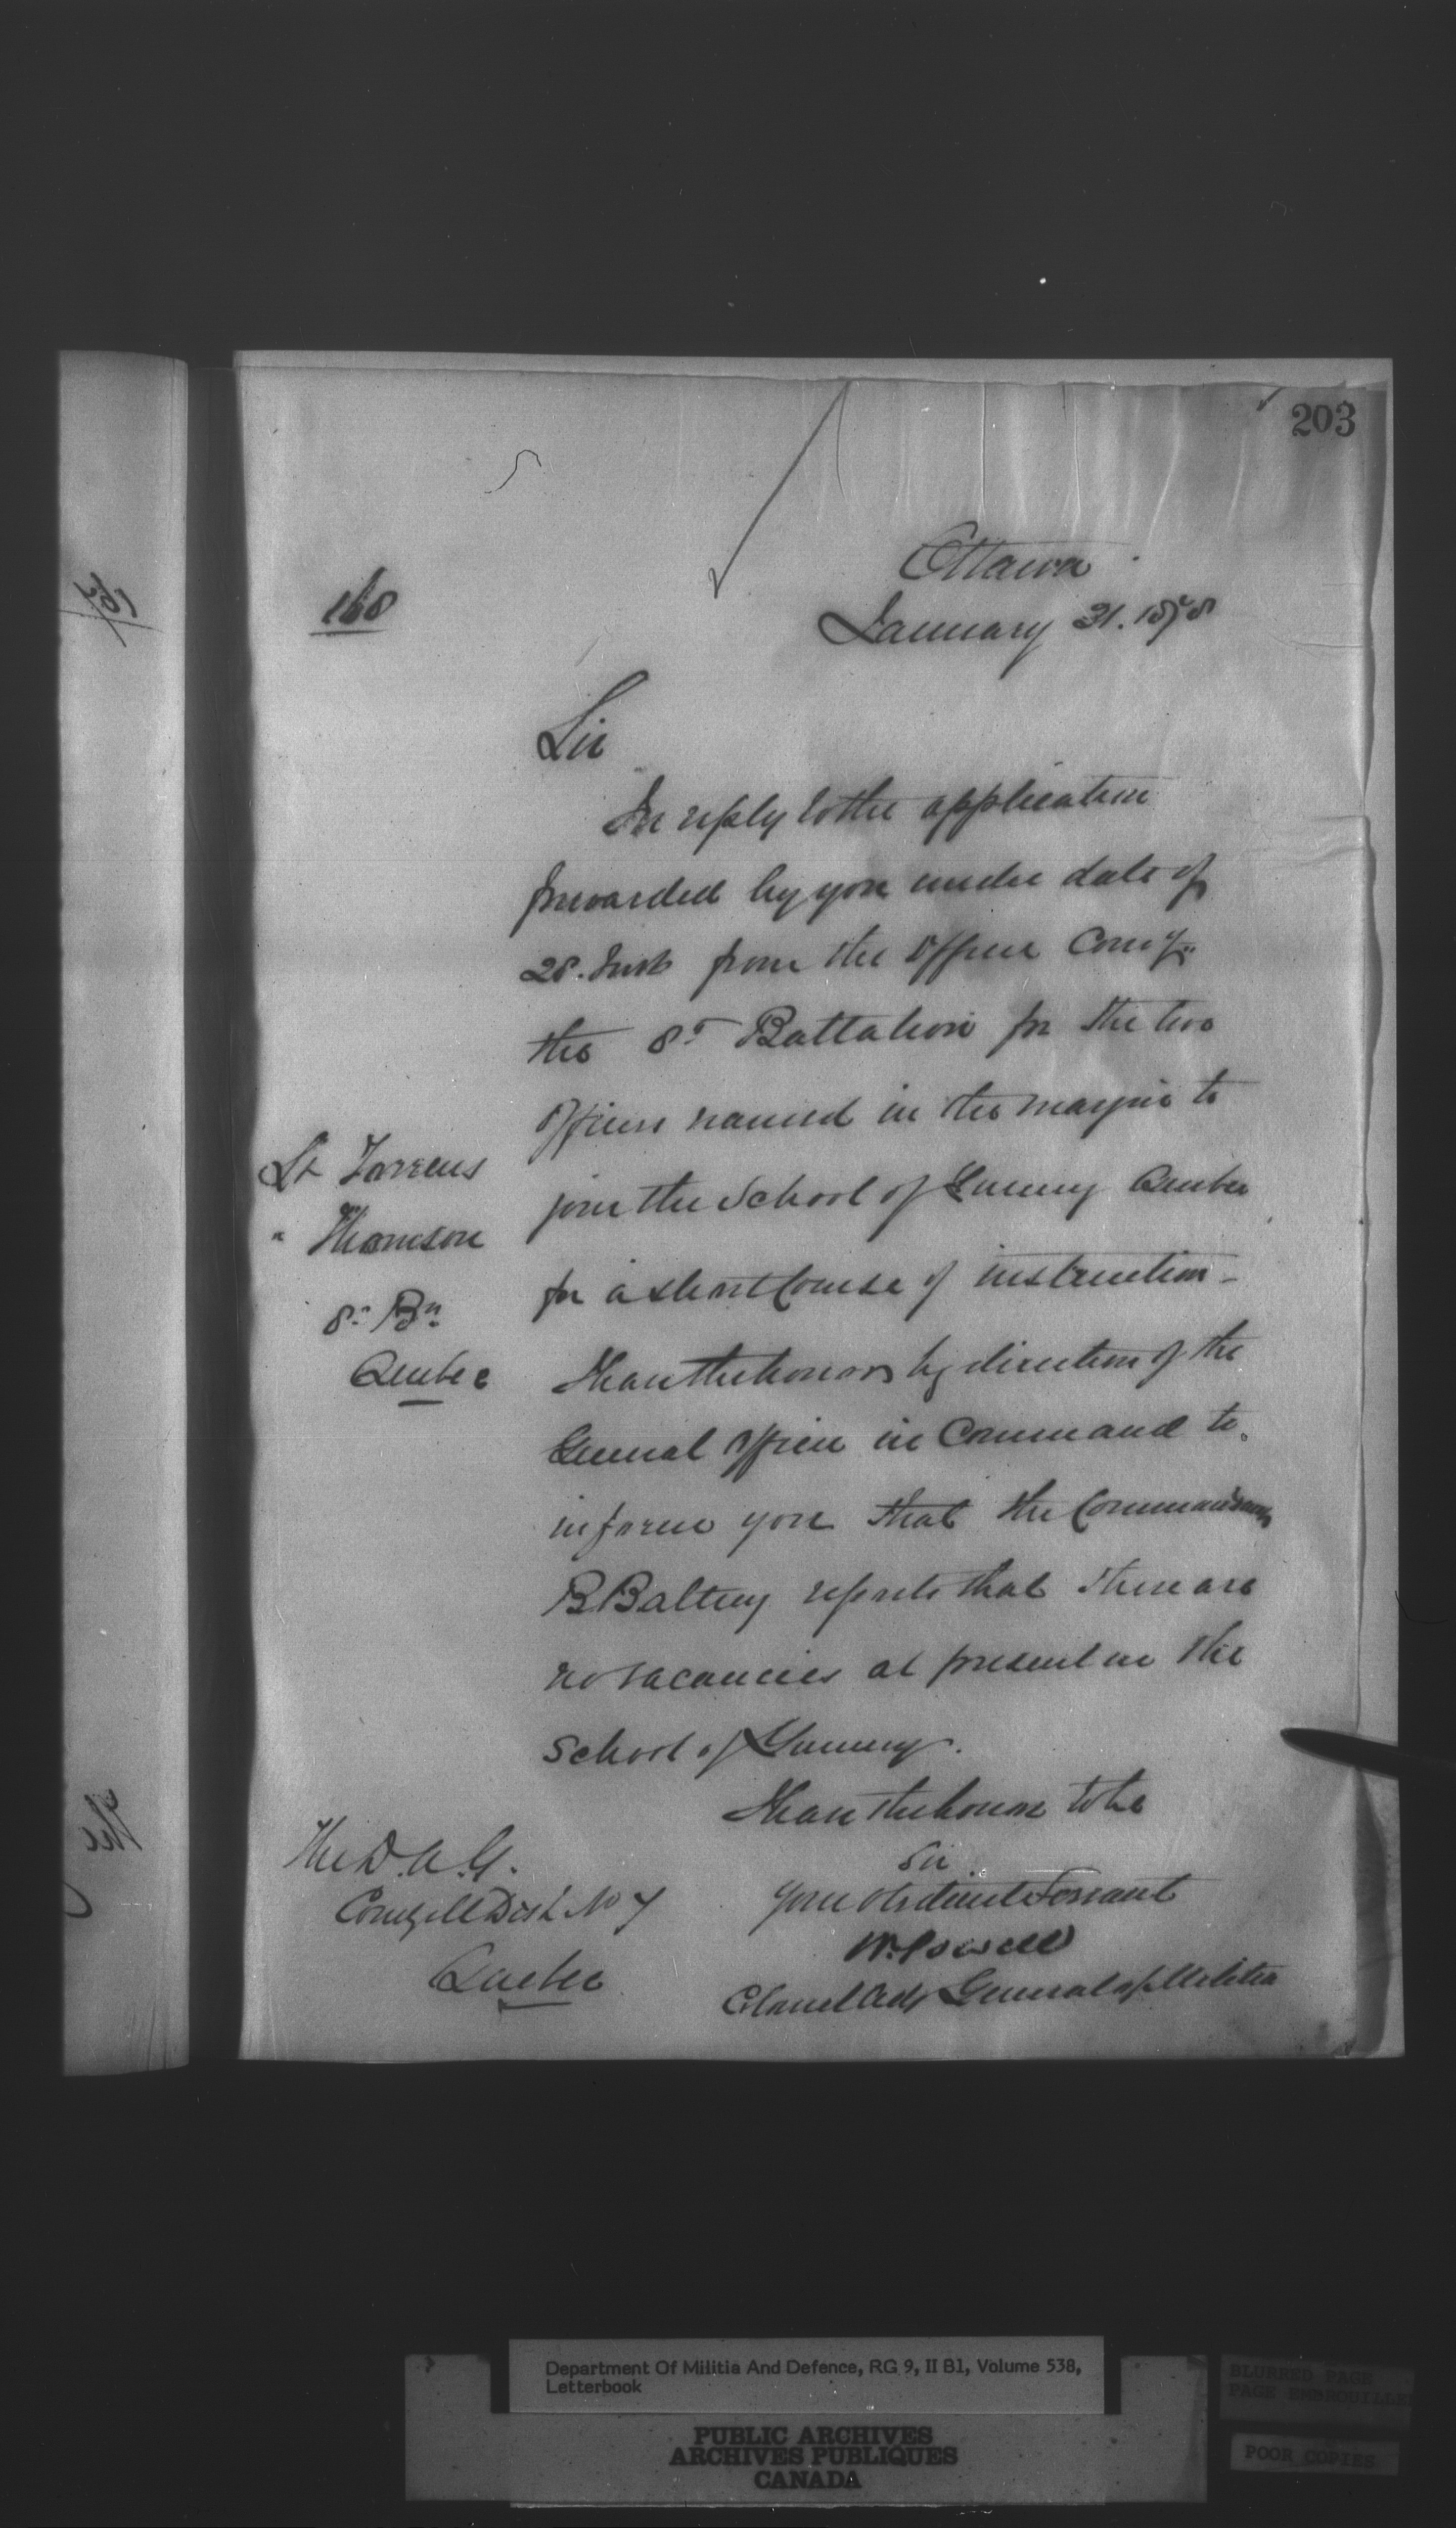 203
Ottawa
168
January 31. 1878
Sir
In reply to the application
forwarded by you under date of
28. Inst from the Officer Comg
the 8th Battalion for the two
Officers named in the margin to
Lt Torrens
join the School of Gunnery Quebec
" Thomson
for a short Course of instruction -
8th Bn
Quebec
I have the honor by direction of the
General Officer in Command to
inform you that the Commanding
B Battery reports that there are
no vacancies at present in the
School of Gunnery.
I have the honor to be
The D. A. G.
Sir
Comg Mil Dist No 7
Your obedient Servant
W. Powell
Quebec
Colonel Adjt General of Militia
Department Of Militia And Defence, RG 9, II B1, Volume 538,
Letterbook
PUBLIC ARCHIVES
ARCHIVES PUBLIQUES
CANADA
BLURRED PAGE
PAGE EMBROUILLEE
POOR COPIES